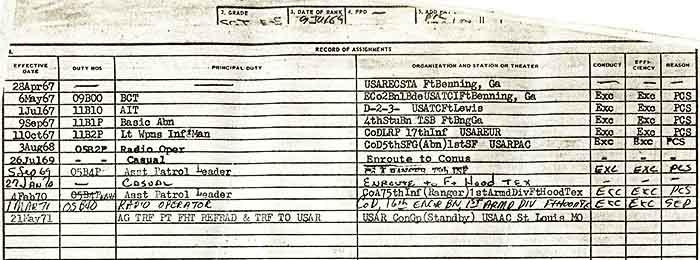 2. GRADE 3. DATE OF RANK 4. PPD
SGT E-5 9Jul69 PCS
RECORD OF ASSIGNMENTS
EFFECTIVE DATE DUTY MOS PRINCIPAL DUTY ORGANIZATION AND STATION OR THEATER CONDUCT EFFI- CIENCY REASON
28Apr67 — USARECSTA FtBenning, Ga — — —
6May67 09B00 BCT ECo2Bn1BdeUSATCIFtBenning, Ga Exc Exc PCS
1Jul67 11B10 AIT D-2-3- USATCFtLewis Exc Exc PCS
9Sep67 11B1P Basic Abn 4thStuBn TSB FtBngGa Exc Exc PCS
11Oct67 11B2P Lt Wpns Inf Man CoDLRP 17thInf USAREUR Exc Exc PCS
3Aug68 05B2P Radio Oper CoD5thSFG(Abn)1stSF USARPAC Exc Exc PCS
26Jul69 — Casual Enroute to Conus — — —
5Sep69 05B4P Asst Patrol Leader EXC EXC PCS
27JAN70 — CASUAL ENROUTE to Ft HOOD TEX — — —
4Feb70 Asst Patrol Leader CoA75thInf(Ranger)1stArmdDivFtHoodTex EXC EXC PCS
1MAR71 05B40 RADIO OPERATOR CoD, 16th ENGR BN, 1ST ARMD DIV EXC EXC SEP
21May71 AG TRF PT FHT REFRAD & TRF TO USAR USAR ConGp(Standby) USAAC St Louis MO